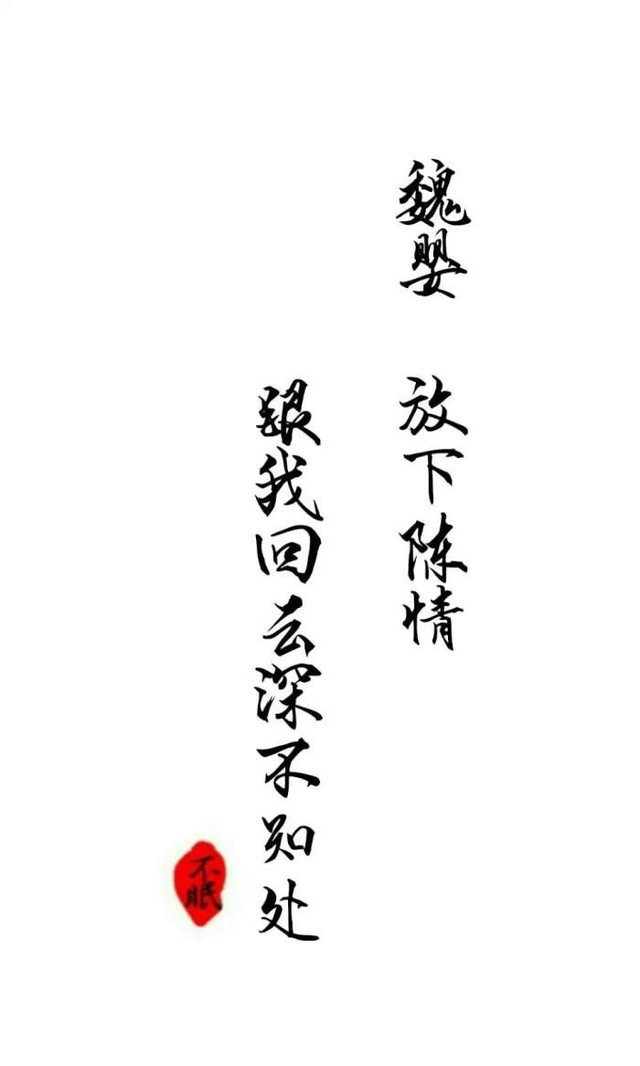 魏婴 放下陈情
跟我回云深不知处
不眠